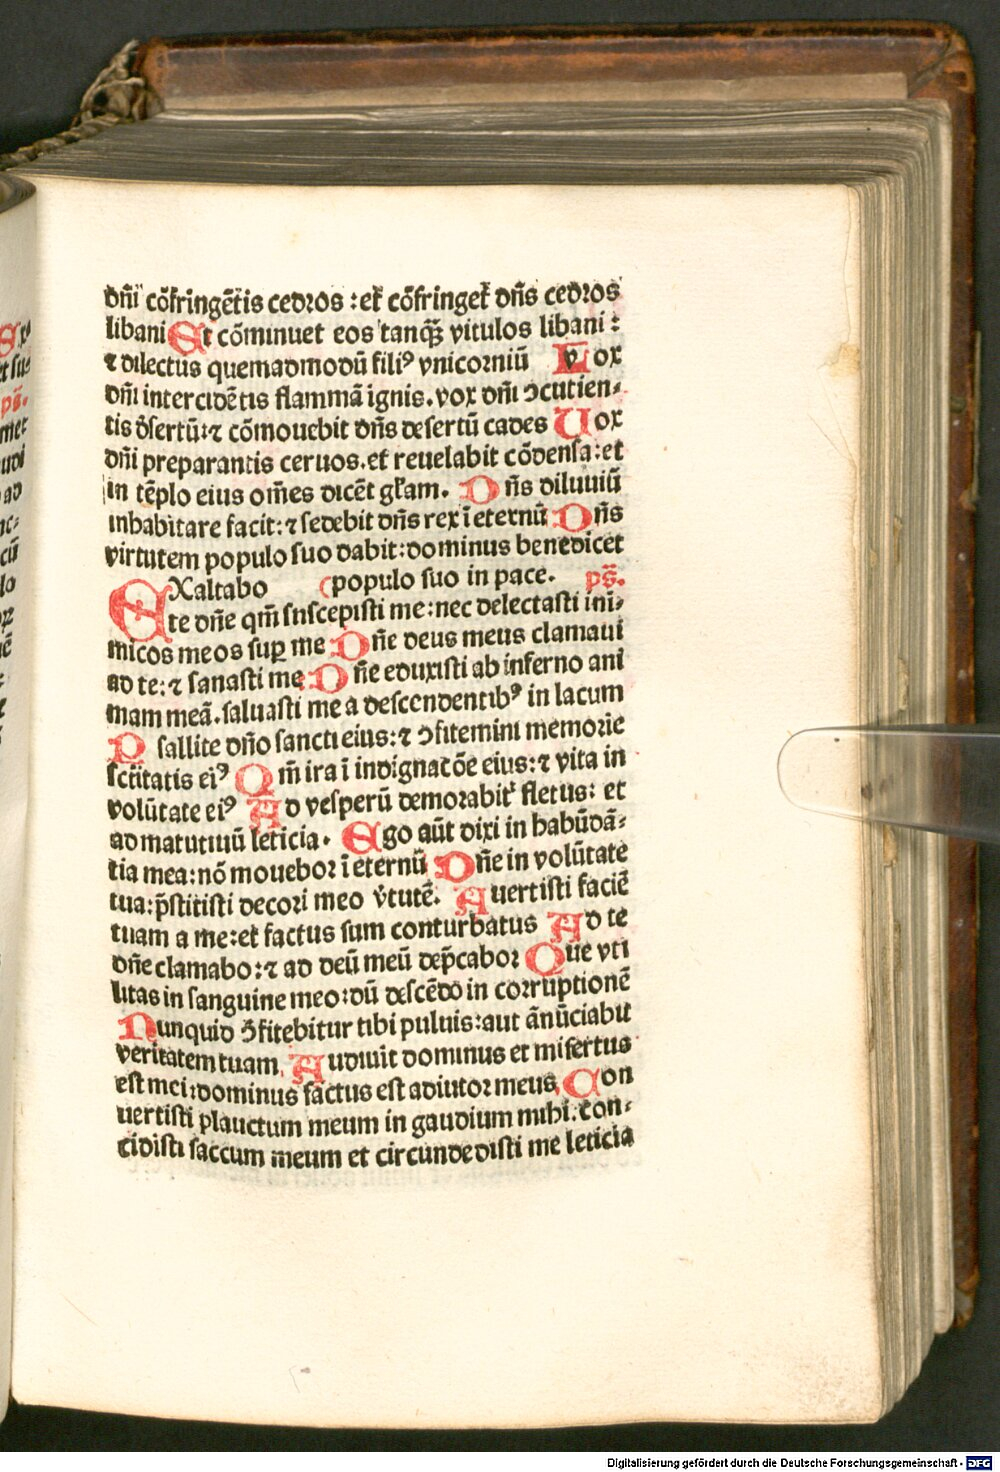 dñi cõfringẽtis cedꝛos : et cõfringet dñs cedꝛos
libani Et cõminuet eos tanqȝ vitulos libani :
⁊ dilectus quemadmodũ filiꝰ vnicoꝛniũ Vox
dñi intercidẽtis flammã ignis. vox dñi ꝯcutien-
tis dsertũ: ⁊ cõmouebit dñs desertũ cades Uox
dñi preparantis ceruos. et reuelabit cõdensa: et
in tẽplo eius om̃es dicẽt gl̃am. Dñs diluuiũ
inhabitare facit: ⁊ sedebit dñs rex ĩ eternũ Dñs
virtutem populo suo dabit: dominus benedicet
EXaltabo (populo suo in pace. ps̃.
te dñe qm̃ snscepisti me: nec delectasti ini-
micos meos suꝑ me Dñe deus meus clamaui
ad te: ⁊ sanasti me Dñe eduxisti ab inferno ani
mam meã. saluasti me a descendentibꝰ in lacum
Psallite dño sancti eius: ⁊ ꝯfitemini memoꝛie
sctitatis eiꝰ Qm̃ ira ĩ indignatõe eius: ⁊ vita in
volũtate eiꝰ Ad vesperũ demoꝛabit᷑ fletus: et
ad matutinũ leticia. Ego aũt dixi in habũdã-
tia mea: nõ moueboꝛ ĩ eternũ Dñe in volũtate
tua: p̃stitisti decoꝛi meo v̓tutẽ. Auertisti faciẽ
tuam a me: et factus sum conturbatus Ad te
dñe clamabo: ⁊ ad deũ meũ dep̃caboꝛ Que vti
litas in sanguine meo: dũ descẽdo in coꝛruptionẽ
Nunquid ꝯfitebitur tibi puluis: aut ãnũciabit
veritatem tuam. Audiuit dominus et misertus
est mei: dominus factus est adiutoꝛ meus Con
uertisti planctum meum in gaudium mihi: con-
cidisti saccum meum et circundedisti me leticia
Digitalisierung gefördert durch die Deutsche Forschungsgemeinschaft - DFG